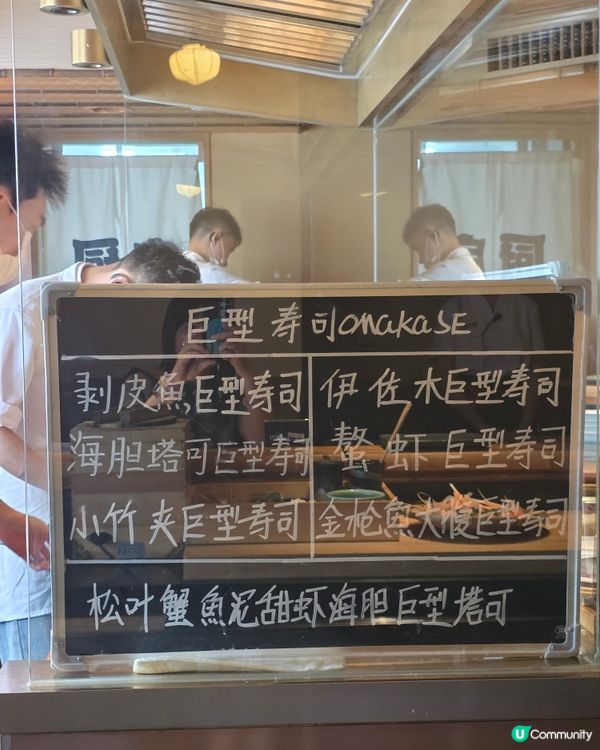 巨型寿司omakaSE
剥皮魚巨型寿司
伊佐木巨型寿司
海胆塔可巨型寿司
螯虾巨型寿司
小竹夹巨型寿司
金枪魚大腹巨型寿司
松叶蟹魚泥甜虾海胆巨型塔可
U Community